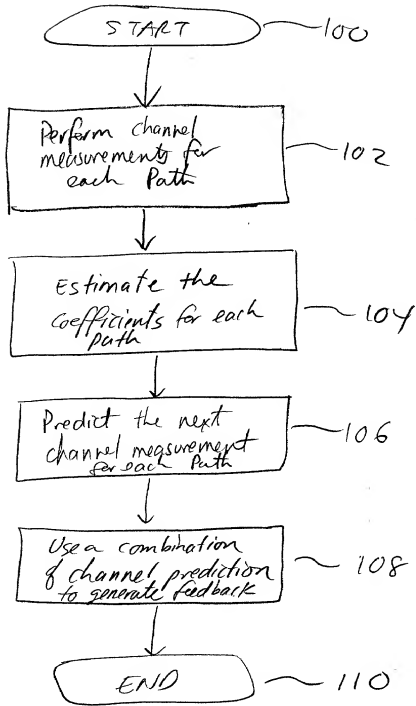 START
100
Perform channel
measurements for
each Path
102
Estimate the
coefficients for each
path
104
Predict the next
channel measurement
for each Path
106
Use a combination
of channel prediction
to generate feedback
108
END
110